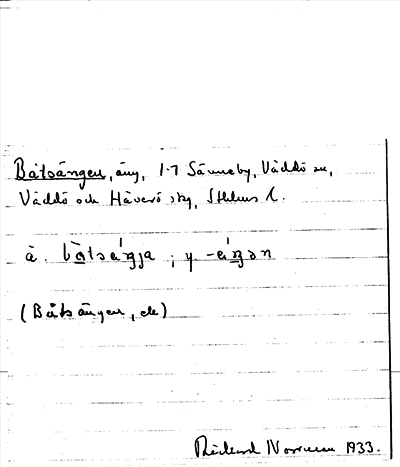 Båtsängen, äng, 1-7 Sänneby, Väddö sn,
Väddö och Häverö skg, Sthlms l.
å. bå̀tsäŋja ; y -äŋən
(Båtsängen, ek)
Rickard Norrman 1933.